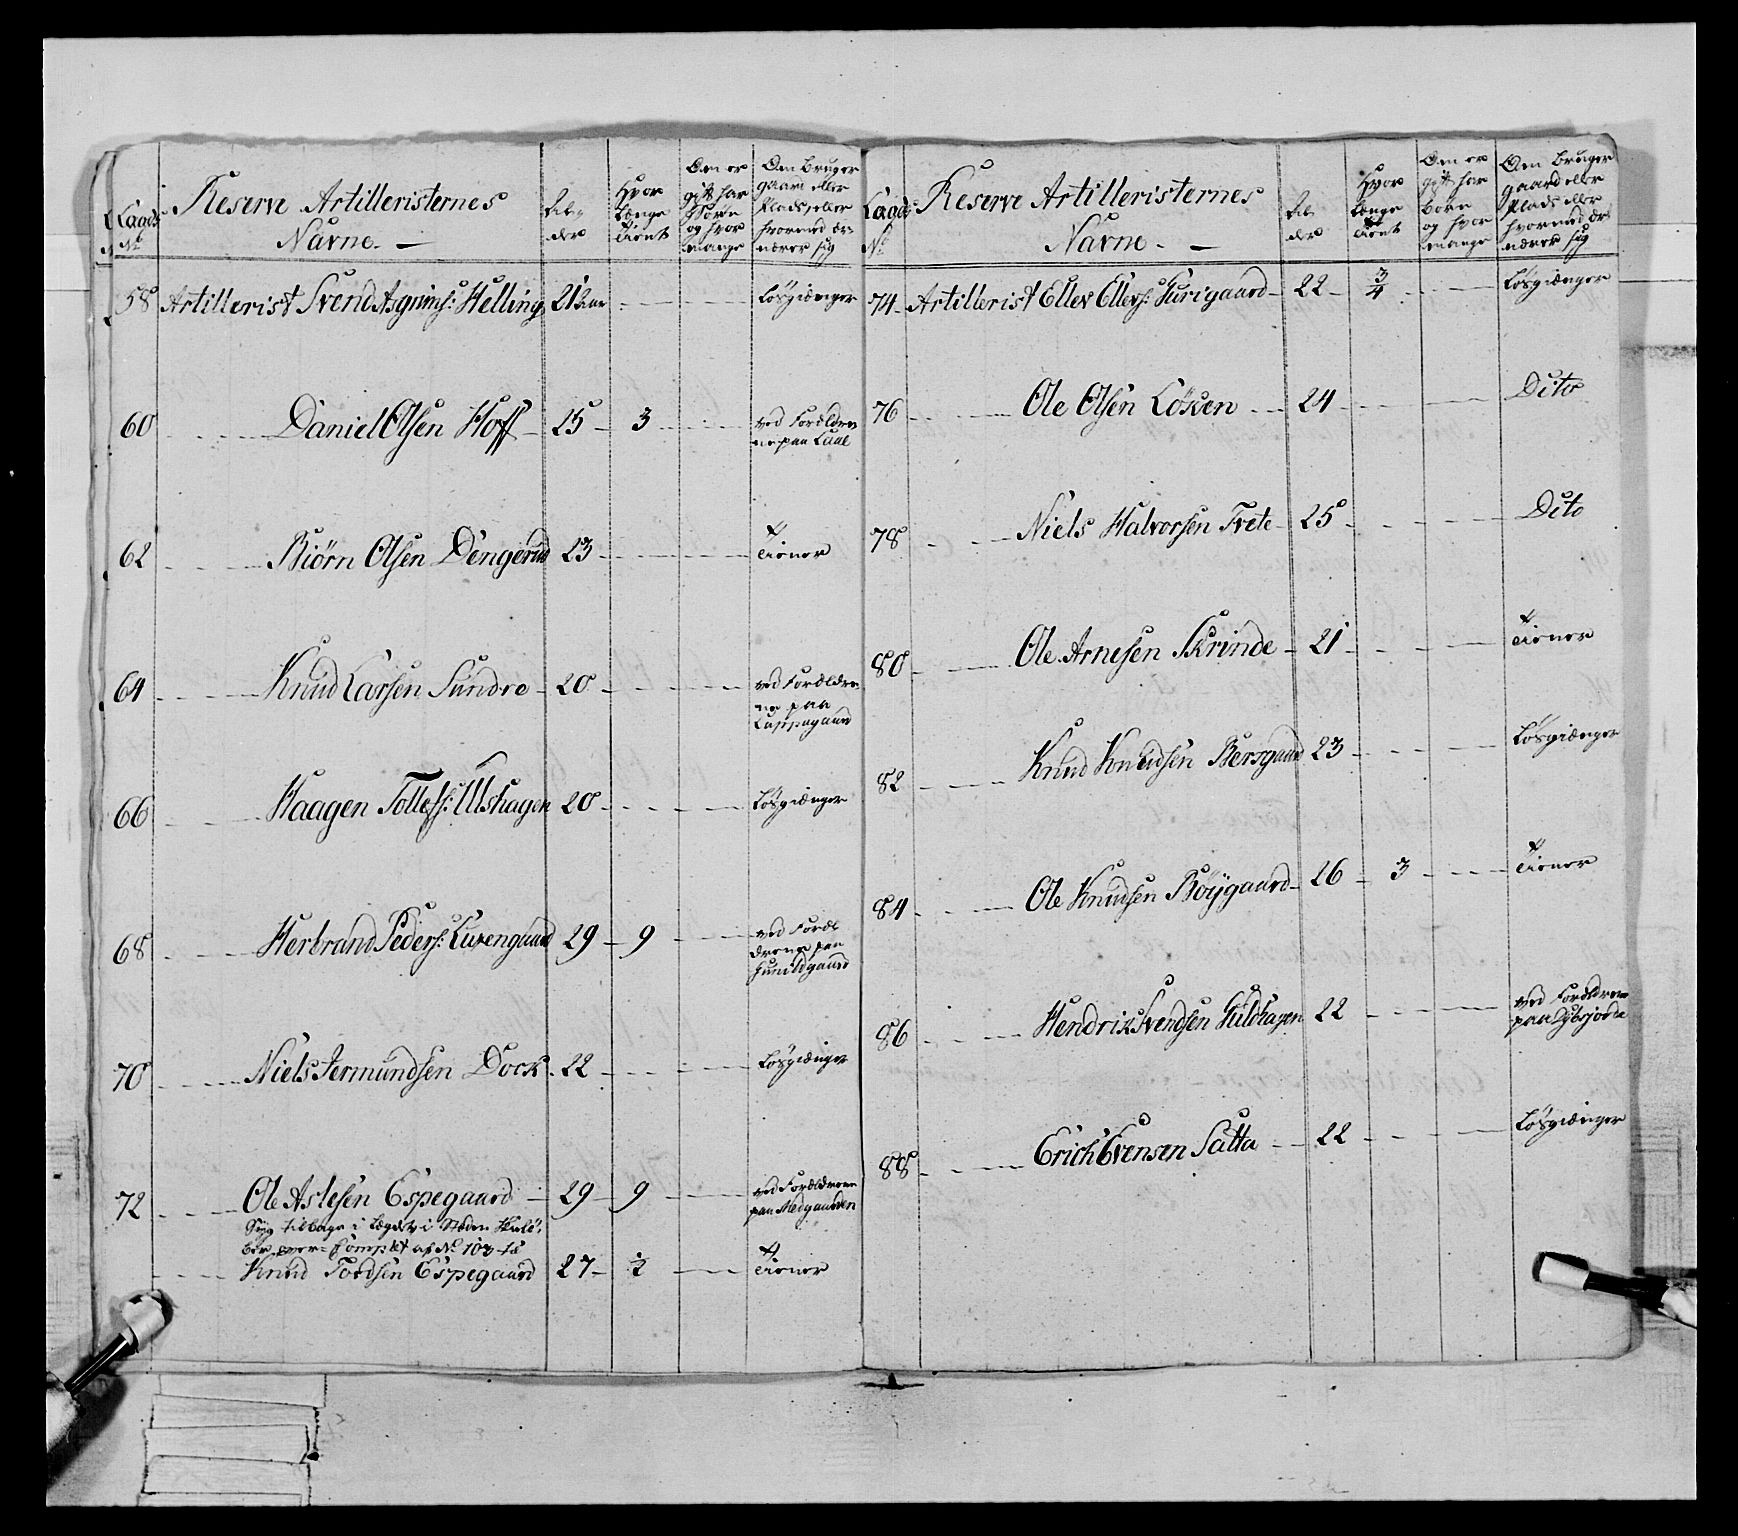 Laads No
Reserve Artilleristernes
Navne. —
Al-
der
Hvor
længe
tient
Om er
gift har
Børn
og hvor
mange
Om bruger
gaard eller
Plads, eller
hvormed er-
nærer sig
58 Artillerist Svend Asgrims: Helling 21 Aar Løsgiænger
60 Daniel Olsen Hoff 25 3 ved Forældre
ne paa Laae
62 Biørn Olsen Dengerud 23 Tiener
64 Knud Larsen Sundre 20 ved Forældre
ne paa
Lappegaard
66 Haagen Tollefs: Ulshagen 20 Løsgiænger
68 Herbrand Peders: Luvengaard 29 9 ved Foræl
drene paa
70 Niels Jermundsen Dock 22 Løsgiænger
72 Ole Aslesen Espegaard 29 9 ved Forældrene
paa Medgaarden
Syg tilbage i Lægdet i Steden
af No 103
Knud Tordsen Espegaard 27 Tiener
Laads No
Reserve Artilleristernes
Navne. —
Al-
der
Hvor
længe
tient
Om er
gift har
børn
og hvor
mange
Om bruger
gaard eller
Plads eller
hvormed er
nærer sig
74 Artillerist Ellev Ellevs: Turigaard 22 3/4 Løsgiænger
76 Ole Olsen Løken 24 Dito
78 Niels Halvorsen Tvete 25 Dito
80 Ole Arnesen Skrinde 21 Tiener
82 Knud Knudsen Bersgaard 23 Løsgiænger
84 Ole Knudsen Bøygaard 26 3 Tiener
86 Hendrik Svendsen Guldhagen 22 ved Forældrene
paa
88 Erich Evensen Satta 22 Løsgiænger